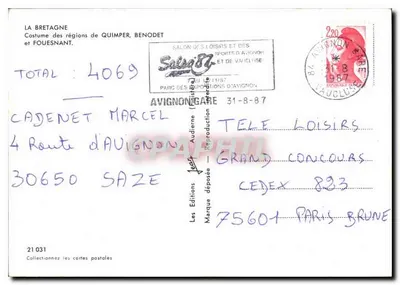 LA BRETAGNE
Costume des régions de QUIMPER, BENODET
et FOUESNANT.
TOTAL : 4069
CADENET MARCEL
4 Route d'AVIGNON
30650 SAZE
21 031
Collectionnez les cartes postales
Les Editions Jos Audierne (Finistère)
Marque déposée Reproduction interdite
SALON DES LOISIRS ET DES
SPORTS D'AVIGNON
ET DE VAUCLUSE
Salsa 87
PARC DES EXPOSITIONS D'AVIGNON
AVIGNON GARE 31-8-87
2,20
84 AVIGNON GARE
31-8
1987
VAUCLUSE
TELE LOISIRS
GRAND CONCOURS
CEDEX 823
75601 PARIS BRUNE